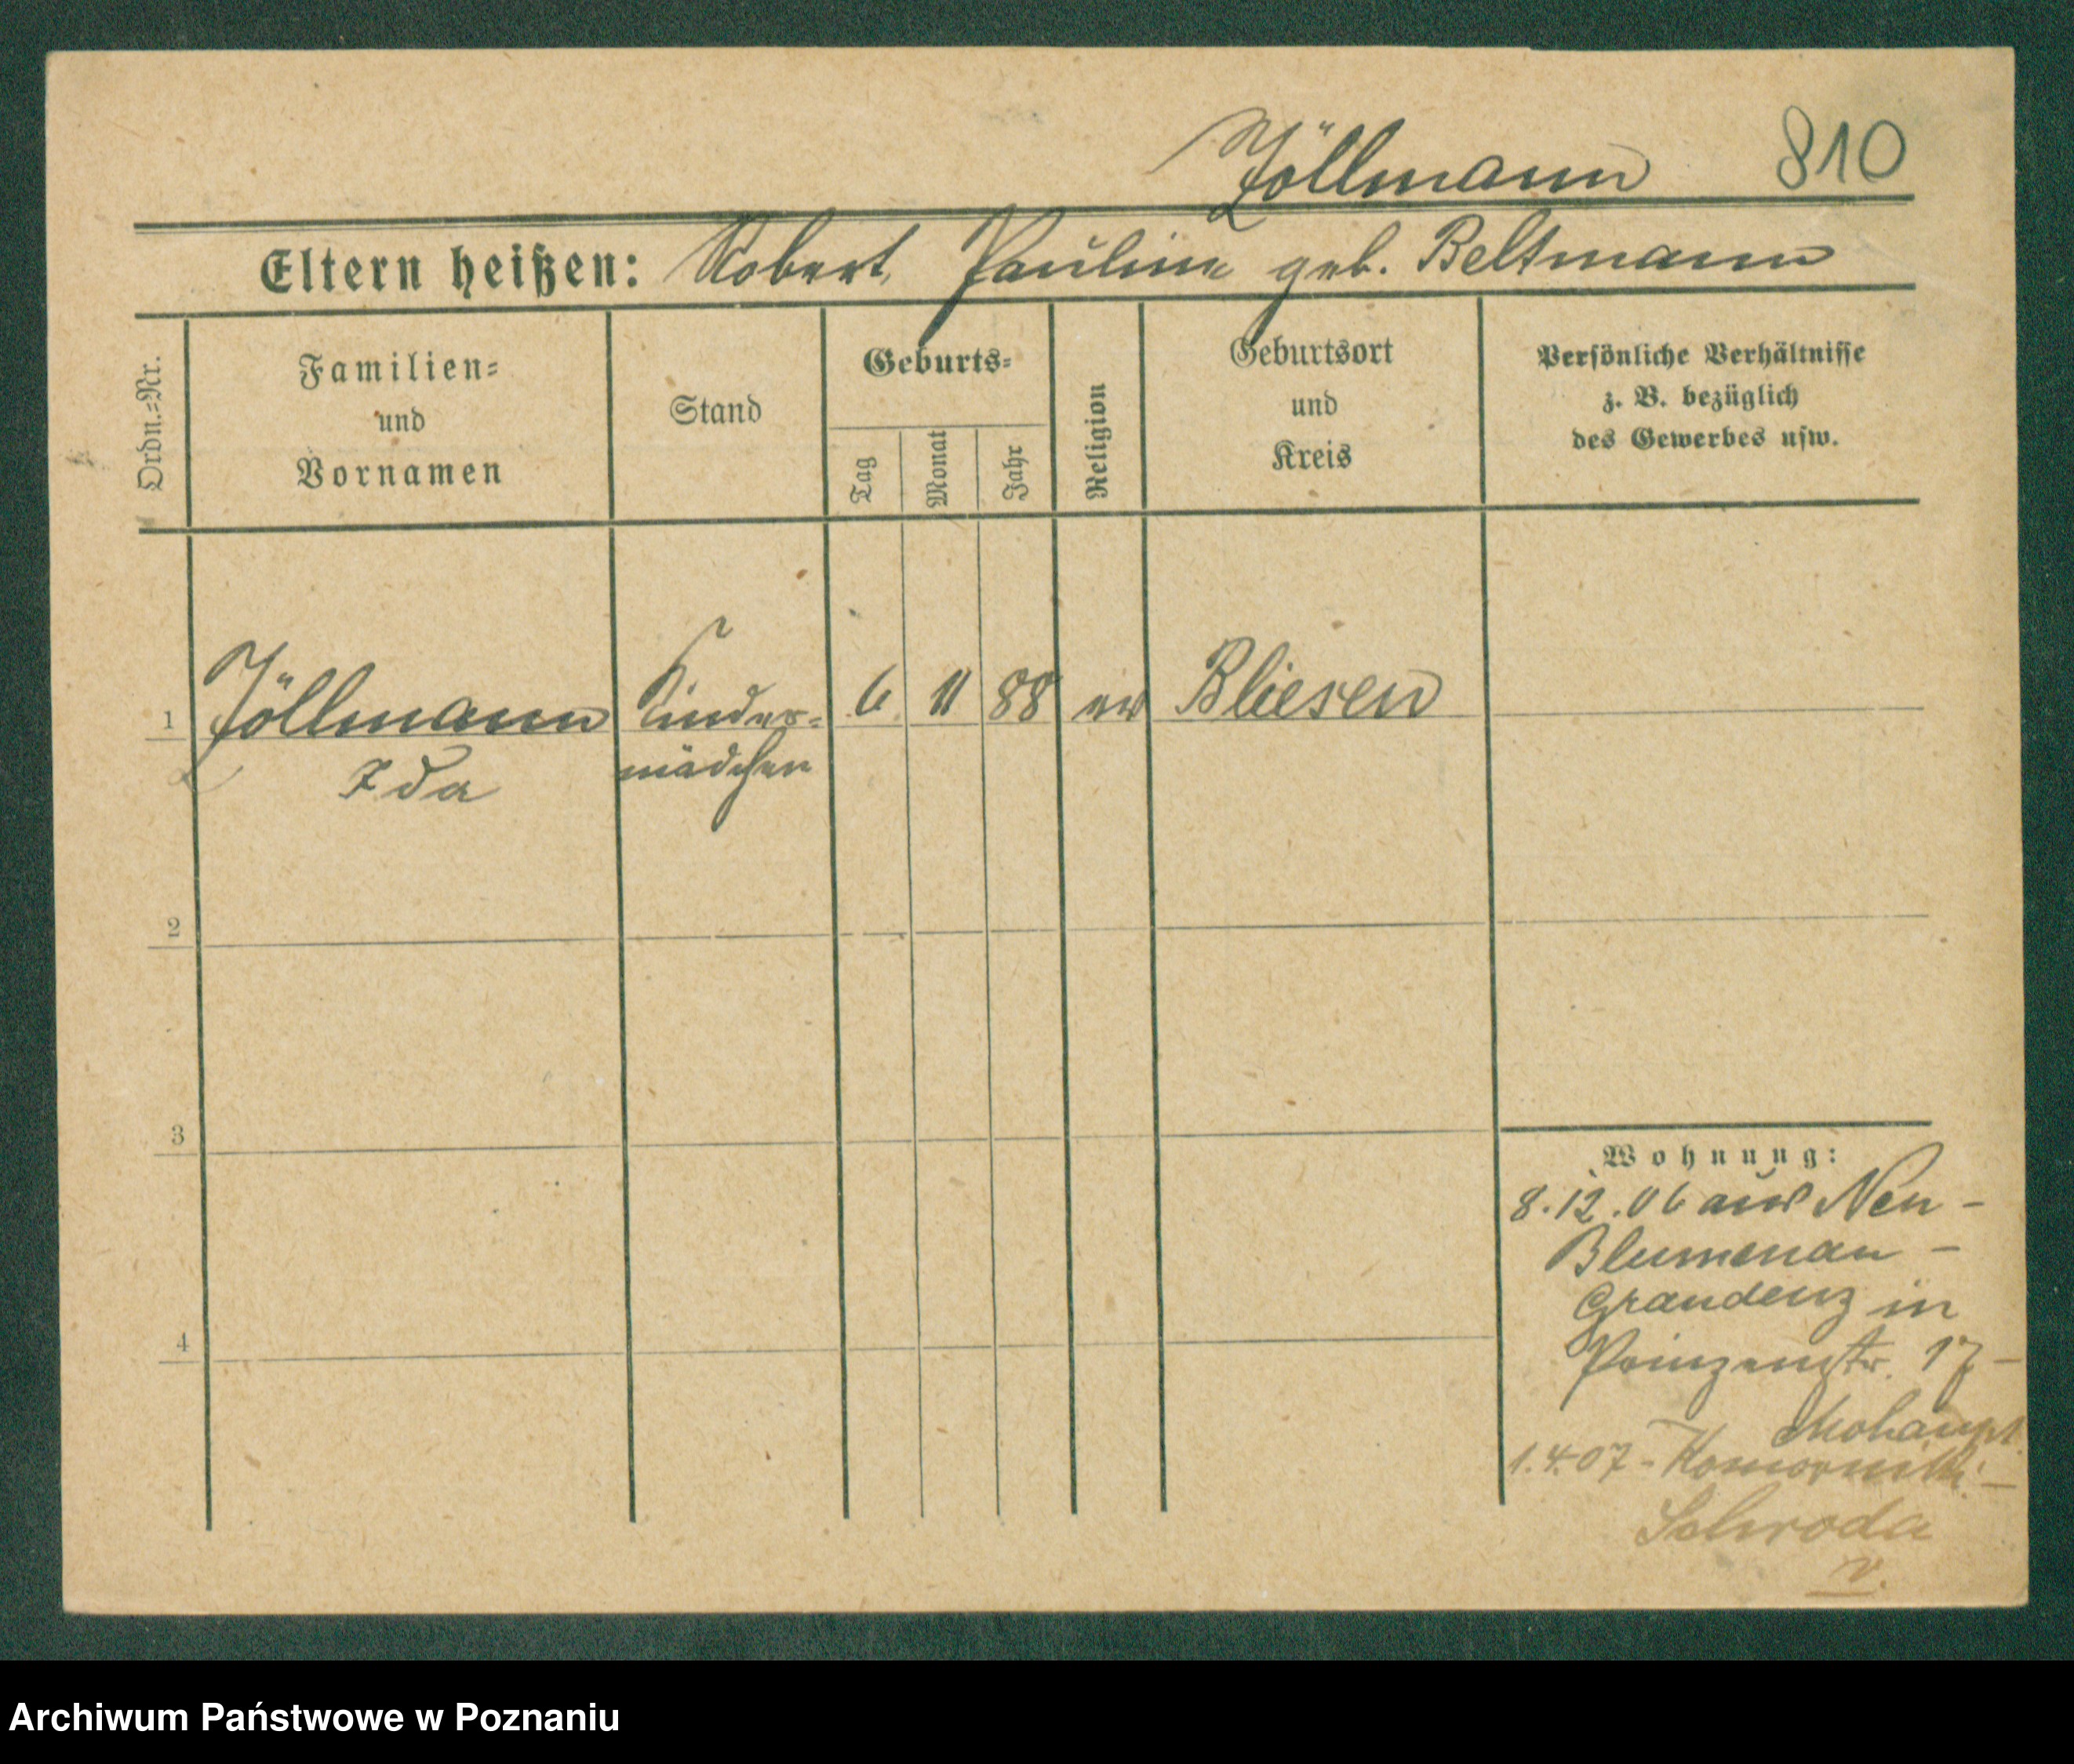 Zöllmann 810
Eltern heißen: Robert, Pauline geb. Beltmann
Ordn.=Nr.
Familien=
und
Vornamen
Stand
Geburts=
Tag
Monat
Jahr
Religion
Geburtsort
und
Kreis
Persönliche Verhältnisse
z. B. bezüglich
des Gewerbes usw.
1 Zöllmann Kinder= 6 11 88 ev Bliesen
Ida mädchen
2
3
4
Wohnung:
8.12.06 aus Neu-
Blumenau -
Graudenz in
Prinzenstr. 17 -
Mohaupt
1.4.07 - Komorniki -
Schroda
v.
Archiwum Państwowe w Poznaniu